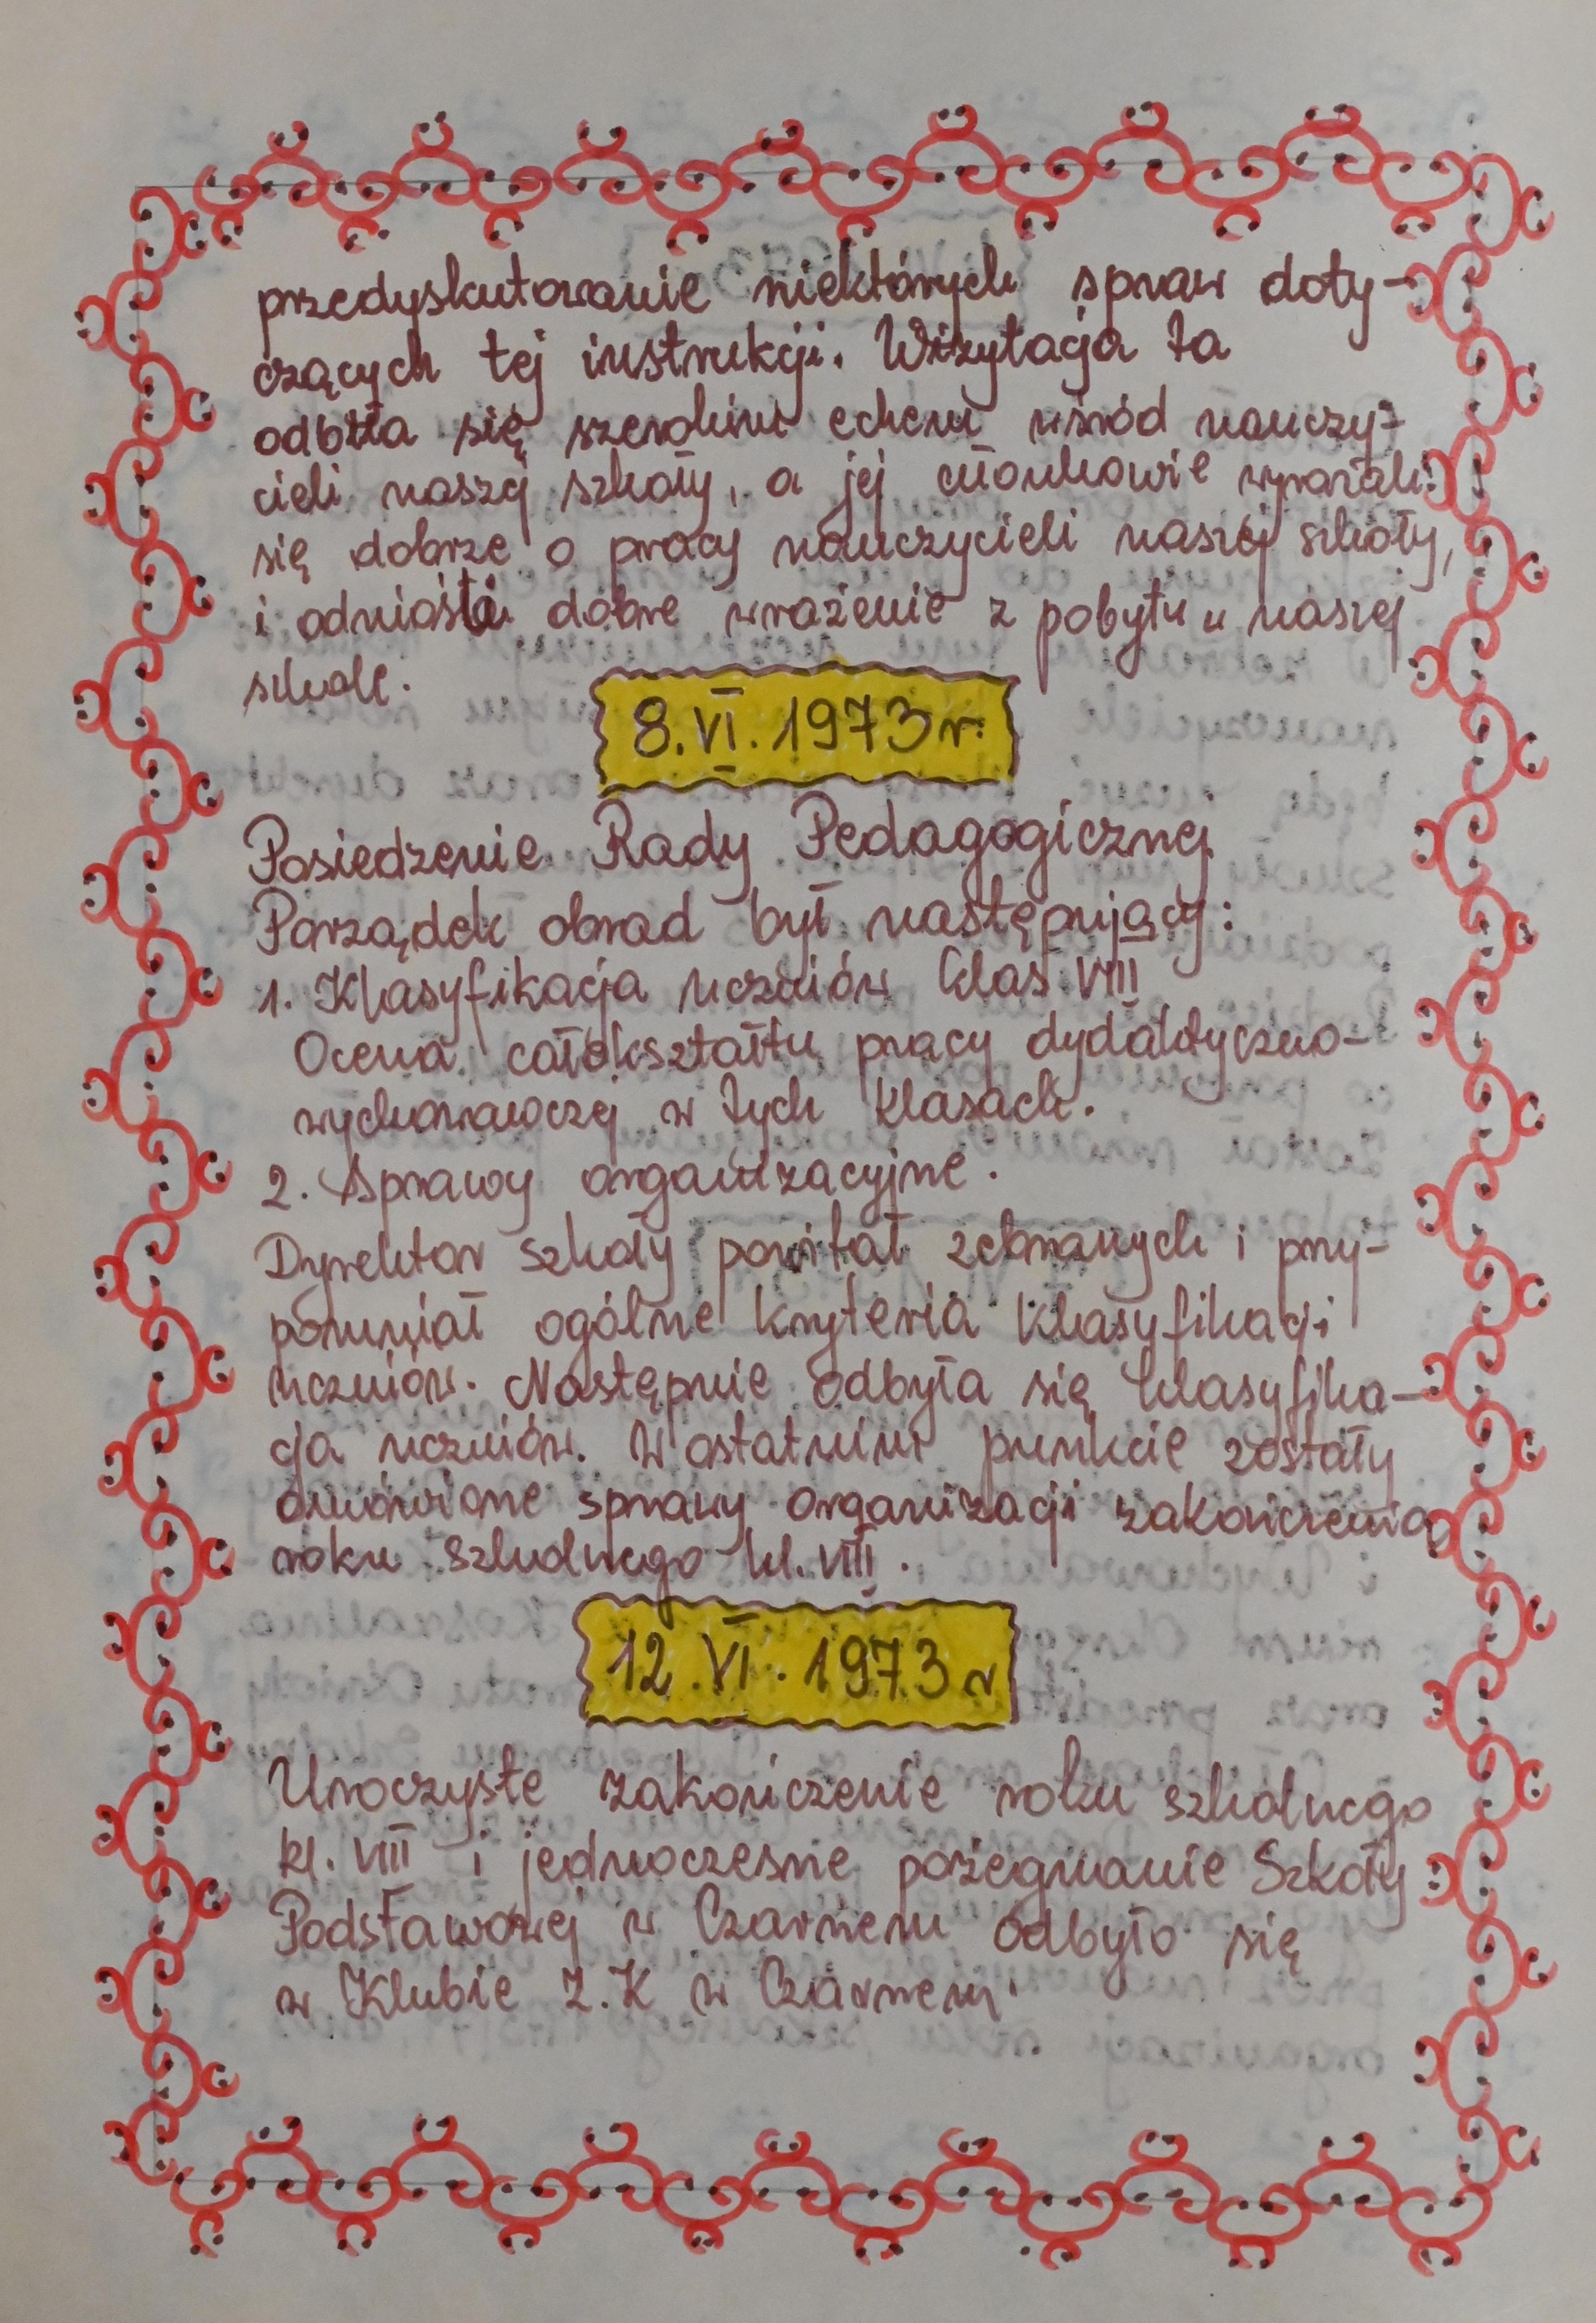 przedyskutowanie niektórych spraw doty-
czących tej instrukcji. Wizytacja ta
odbiła się szerokim echem wśród nauczy-
cieli naszej szkoły, a jej członkowie wyrażali
się dobrze o pracy nauczycieli naszej szkoły,
i odnieśli dobre wrażenie z pobytu w naszej
szkole.
8. VI. 1973 r.
Posiedzenie Rady Pedagogicznej
Porządek obrad był następujący:
1. Klasyfikacja uczniów klas VIII
Ocena całokształtu pracy dydaktyczno-
wychowawczej w tych klasach.
2. Sprawy organizacyjne.
Dyrektor szkoły powitał zebranych i przy-
pomniał ogólne kryteria klasyfikacji
uczniów. Następnie odbyła się klasyfika-
cja uczniów. W ostatnim punkcie zostały
omówione sprawy organizacji zakończenia
roku szkolnego kl. VIII.
12. VI. 1973 r
Uroczyste zakończenie roku szkolnego
kl. VIII i jednoczesne pożegnanie Szkoły
Podstawowej w Czarnem odbyło się
w Klubie Z.K w Czarnem.